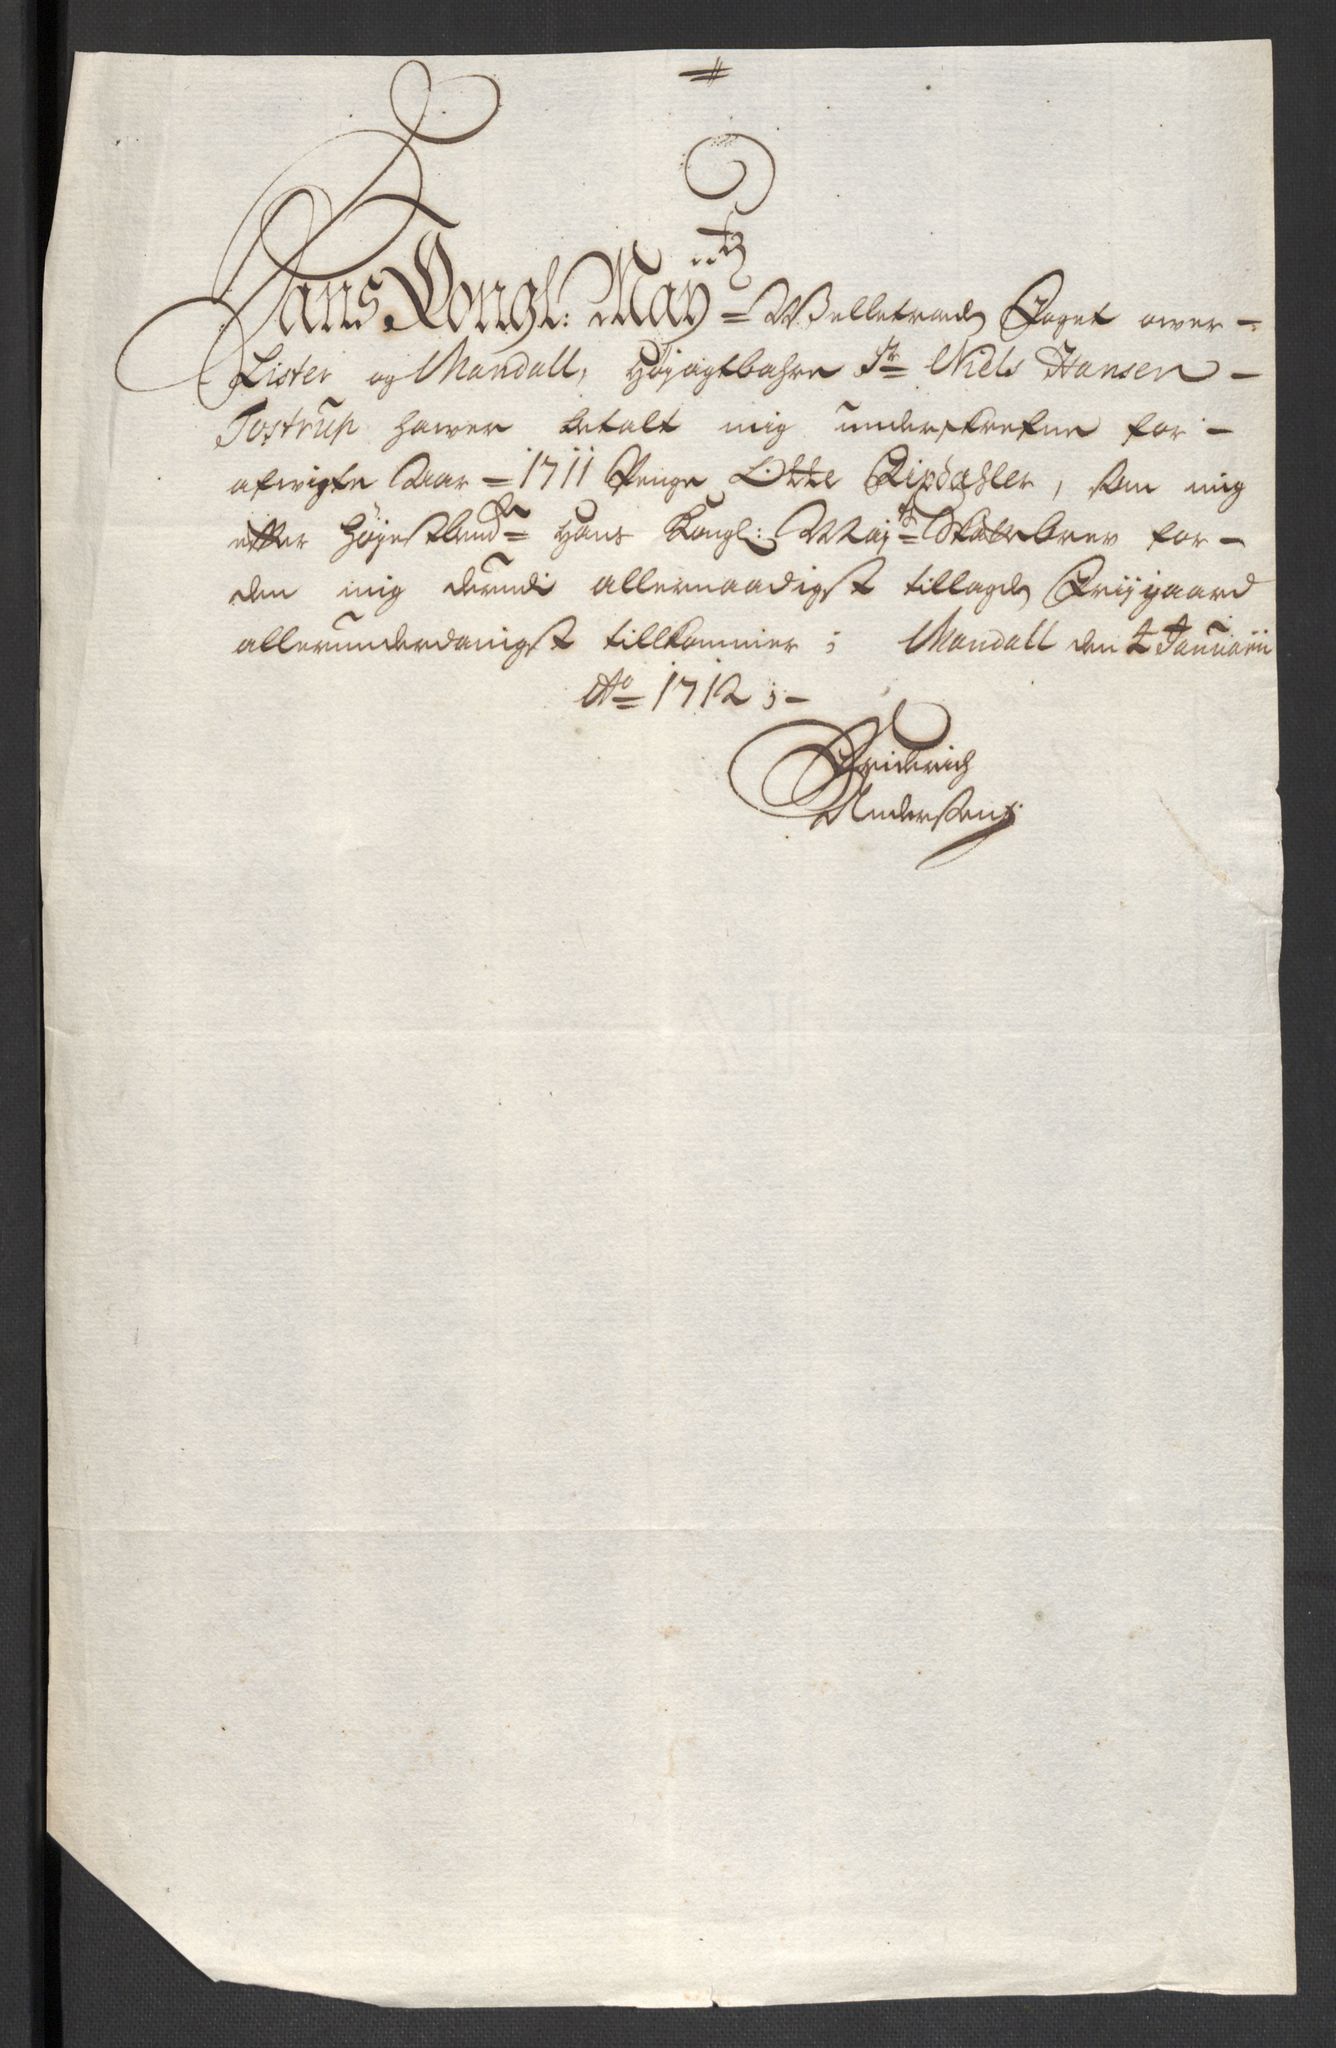 Hans Kongl: May.tz Velbetroede Foget ower
Lister og Mandall, Höyagtbahre Sr Niels Hansen
Tostrup hawer betalt mig underskrefne for
afvigte Aar 1711 Penge Otte Rixdahler, som mig
efter Höyestbem.te Hans Kongl: Maj.tz brev for
den mig derudi allernaadigst tillagde Friigaard
allerunderdanigst tillkommer; Mandall den 2 Januarii
Ao 1712;
Friderich
Andersen